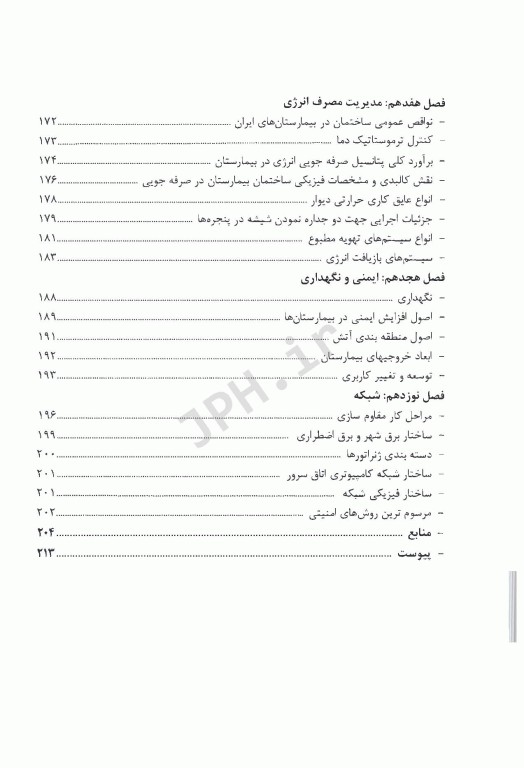 فصل هفدهم: مدیریت مصرف انرژی
- نواقص عمومی ساختمان در بیمارستان‌های ایران ........ ۱۷۲
- کنترل ترموستاتیک دما ........ ۱۷۳
- برآورد کلی پتانسیل صرفه جویی انرژی در بیمارستان ........ ۱۷۴
- نقش کالبدی و مشخصات فیزیکی ساختمان بیمارستان در صرفه جویی ........ ۱۷۶
- انواع عایق کاری حرارتی دیوار ........ ۱۷۸
- جزئیات اجرایی جهت دو جداره نمودن شیشه در پنجره‌ها ........ ۱۷۹
- انواع سیستم‌های تهویه مطبوع ........ ۱۸۱
- سیستم‌های بازیافت انرژی ........ ۱۸۳
فصل هجدهم: ایمنی و نگهداری
- نگهداری ........ ۱۸۸
- اصول افزایش ایمنی در بیمارستان‌ها ........ ۱۸۹
- اصول منطقه بندی آتش ........ ۱۹۱
- ابعاد خروجیهای بیمارستان ........ ۱۹۲
- توسعه و تغییر کاربری ........ ۱۹۳
فصل نوزدهم: شبکه
- مراحل کار مقاوم سازی ........ ۱۹۶
- ساختار برق شهر و برق اضطراری ........ ۱۹۹
- دسته بندی ژنراتورها ........ ۲۰۰
- ساختار شبکه کامپیوتری اتاق سرور ........ ۲۰۱
- ساختار فیزیکی شبکه ........ ۲۰۱
- مرسوم ترین روش‌های امنیتی ........ ۲۰۲
- منابع ........ ۲۰۴
- پیوست ........ ۲۱۳
JPH.ir